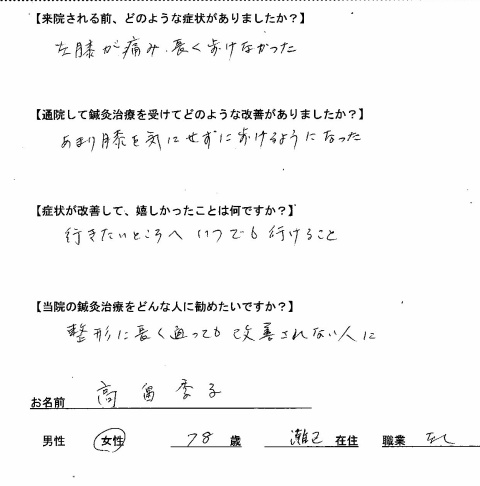 【来院される前、どのような症状がありましたか？】
左膝が痛み、長く歩けなかった
【通院して鍼灸治療を受けてどのような改善がありましたか？】
あまり膝を気にせずに歩けるようになった
【症状が改善して、嬉しかったことは何ですか？】
行きたいところへ いつでも 行けること
【当院の鍼灸治療をどんな人に勧めたいですか？】
整形に長く通っても改善されない人に
お名前 高畠季子
男性 女性 78 歳 瀬戸 在住 職業 なし